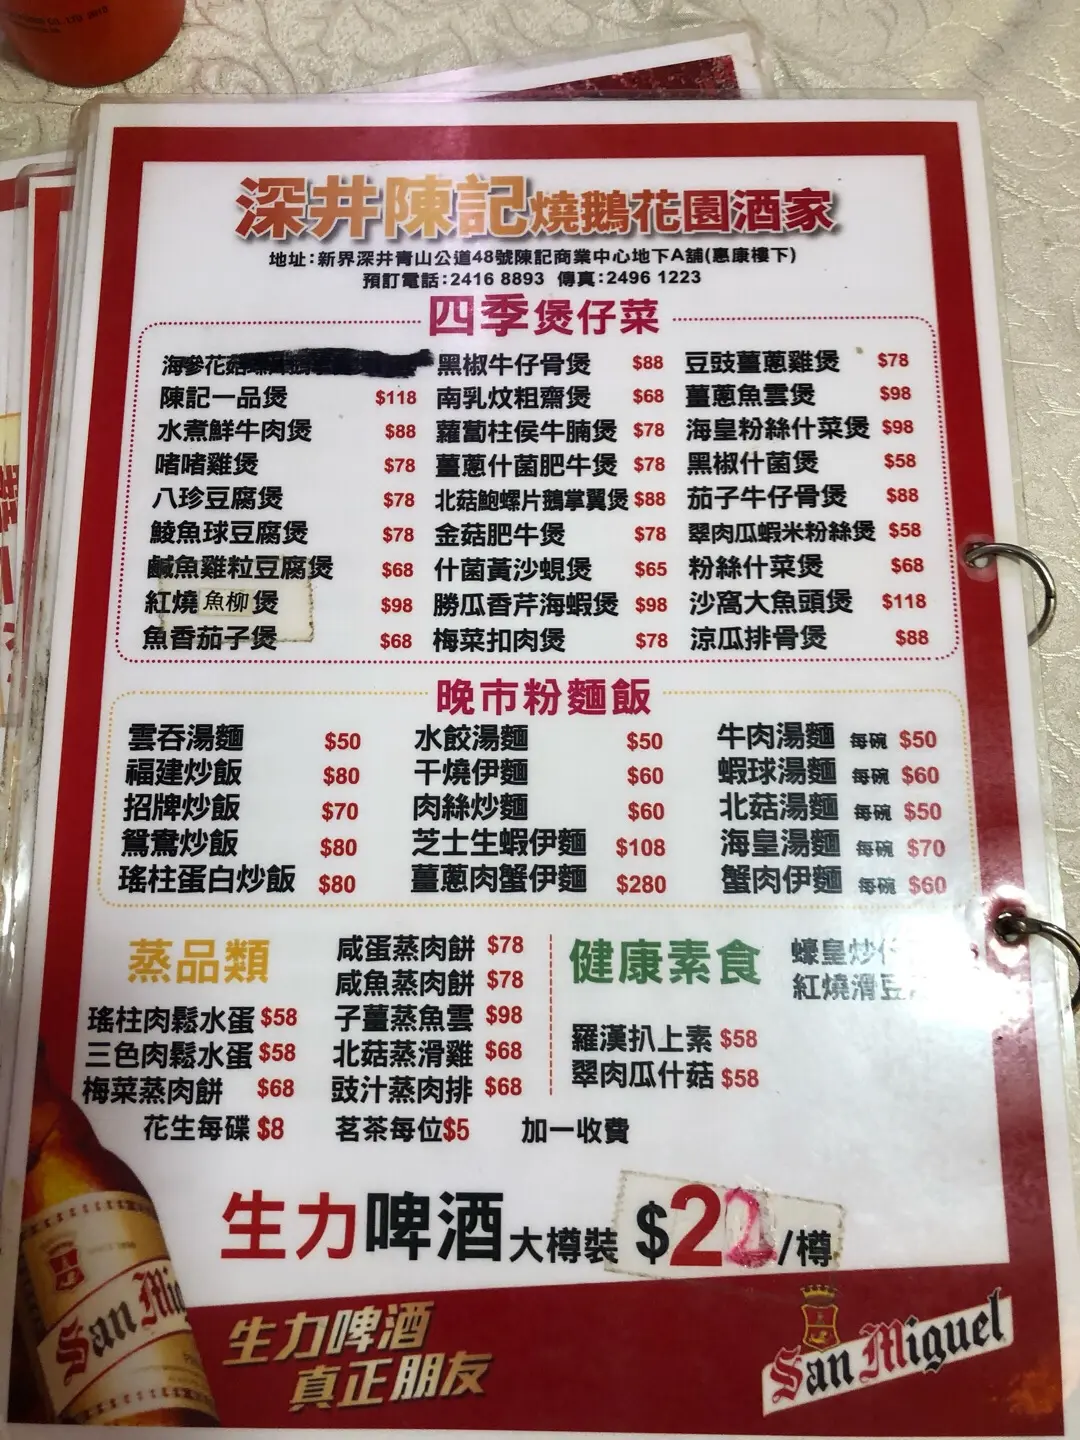 深井陳記燒鵝花園酒家
地址：新界深井青山公道48號陳記商業中心地下A舖(惠康樓下)
預訂電話：2416 8893 傳真：2496 1223
四季煲仔菜
海參花菇
陳記一品煲 $118
水煮鮮牛肉煲 $88
啫啫雞煲 $78
八珍豆腐煲 $78
鯪魚球豆腐煲 $78
鹹魚雞粒豆腐煲 $68
紅燒魚柳煲 $98
魚香茄子煲 $68
黑椒牛仔骨煲 $88
南乳炆粗齋煲 $68
蘿蔔柱侯牛腩煲 $78
薑蔥什菌肥牛煲 $78
北菇鮑螺片鵝掌翼煲 $88
金菇肥牛煲 $78
什菌黃沙蜆煲 $65
勝瓜香芹海蝦煲 $98
梅菜扣肉煲 $78
豆豉薑蔥雞煲 $78
薑蔥魚雲煲 $98
海皇粉絲什菜煲 $98
黑椒什菌煲 $58
茄子牛仔骨煲 $88
翠肉瓜蝦米粉絲煲 $58
粉絲什菜煲 $68
沙窩大魚頭煲 $118
涼瓜排骨煲 $88
晚市粉麵飯
雲吞湯麵 $50
福建炒飯 $80
招牌炒飯 $70
鴛鴦炒飯 $80
瑤柱蛋白炒飯 $80
水餃湯麵 $50
干燒伊麵 $60
肉絲炒麵 $60
芝士生蝦伊麵 $108
薑蔥肉蟹伊麵 $280
牛肉湯麵 每碗 $50
蝦球湯麵 每碗 $60
北菇湯麵 每碗 $50
海皇湯麵 每碗 $70
蟹肉伊麵 每碗 $60
蒸品類
瑤柱肉鬆水蛋 $58
三色肉鬆水蛋 $58
梅菜蒸肉餅 $68
咸蛋蒸肉餅 $78
咸魚蒸肉餅 $78
子薑蒸魚雲 $98
北菇蒸滑雞 $68
豉汁蒸肉排 $68
健康素食
蠔皇炒
紅燒滑豆
羅漢扒上素 $58
翠肉瓜什菇 $58
花生每碟 $8 茗茶每位$5 加一收費
生力啤酒大樽裝 $22/樽
San Mig
生力啤酒
真正朋友
San Miguel